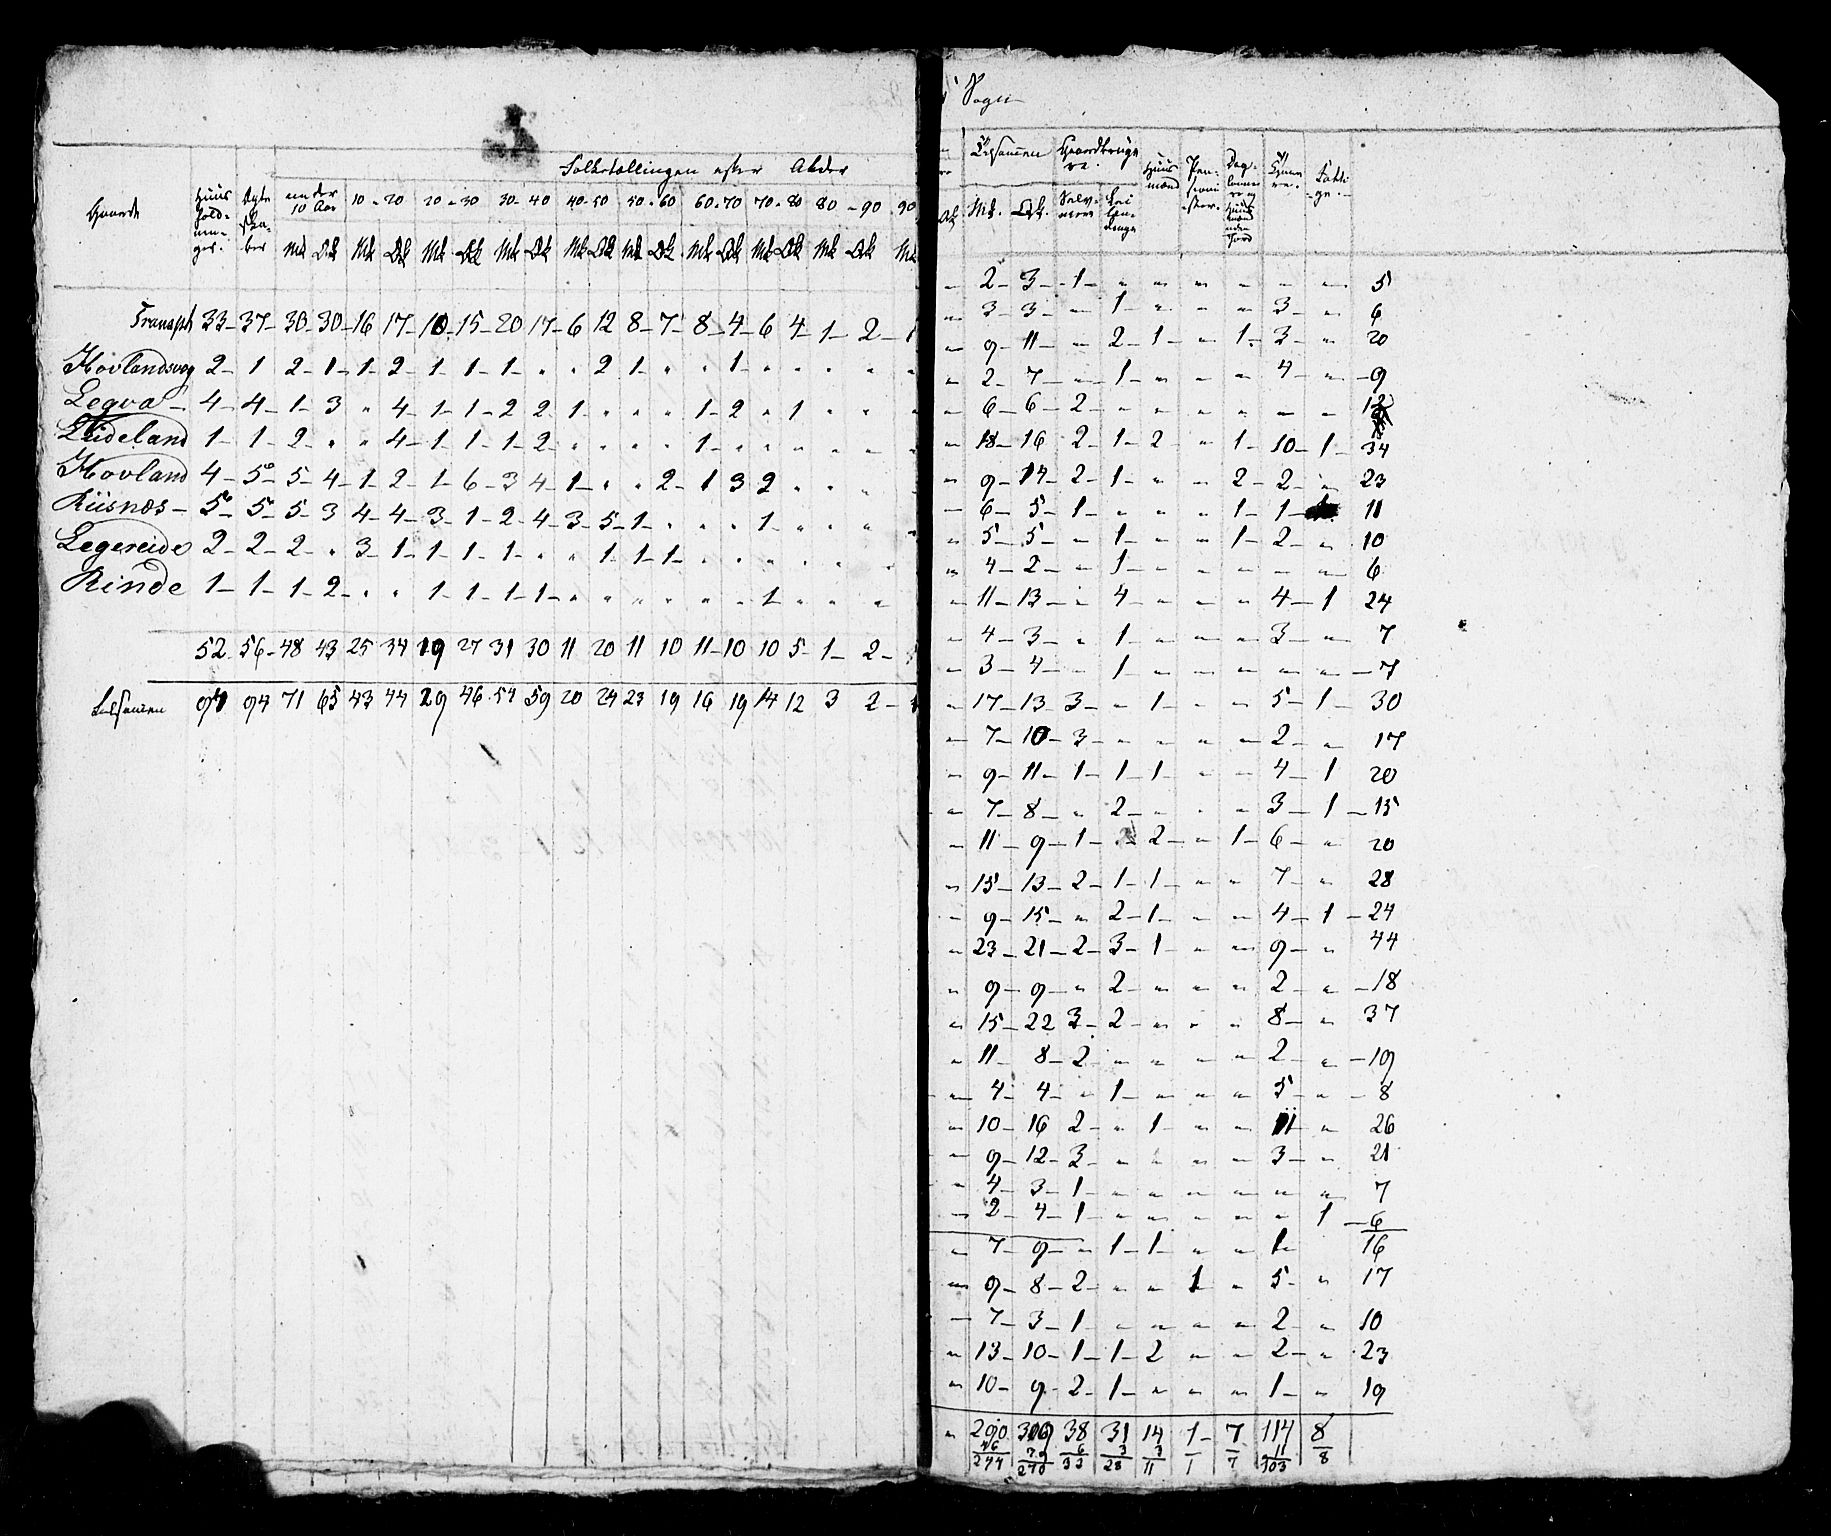 Folketællingen efter Alder
Gaarde
Huus holdninger. Ægteskaber under 10 Aar 10-20 20-30 30-40 40-50 50-60 60-70 70-80 80-90 90
Mk Qk Mk Qk Mk Qk Mk Qk Mk Qk Mk Qk Mk Qk Mk Qk Mk Qk Mk
Transpt 33 - 37 - 30 - 30 - 16 17 - 10 - 15 - 20 17 - 6 12 8 - 7 - 8 - 4 - 6 4 - 1 - 2 - 1
Hovlandsvog 2 - 1 2 - 1 - 1 - 2 - 1 - 1 - 1 - " " 2 1 - " " 1 - " " " " "
Legva - 4 - 4 - 1 - 3 " 4 - 1 - 1 - 2 2 - 1 " " " " 1 - 2 " 1 " " "
Leideland 1 - 1 - 2 - " " 4 - 1 - 1 - 1 - 2 - " " " " " 1 - " " " " " "
Hovland 4 - 5 - 5 - 4 - 1 - 2 - 1 - 6 - 3 4 - 1 - " " 2 - 1 3 2 " " " "
Riisnæs - 5 - 5 - 5 - 3 4 - 4 - 3 - 1 - 2 - 4 - 3 - 5 - 1 - " " " " 1 - " " " "
Legereide 2 - 2 - 2 - " 3 - 1 - 1 - 1 - 1 - " " 1 1 - 1 - " " " " " " "
Rinde 1 - 1 - 1 - 2 - " " 1 - 1 - 1 - 1 - " " " " " " 1 - " " "
52 - 56 - 48 43 25 34 19 27 31 30 11 20 11 10 11 - 10 10 5 - 1 - 2 -
94 94 71 65 43 44 29 46 54 59 20 24 23 19 16 19 14 12 3 2 -
Sogn
Tilsamen Gaardbrugere. Huusmænd Pensionister. Daglønnere og Huusmænd uden Jord Tjenere. Fattige. -
Qk Mk. Qk. Selveiere Leilændinge
" 2 - 3 - 1 - " " " " " " 5
" 3 - 3 - " 1 - " " " 3 - " 6
" 9 - 11 - " 2 - 1 - " 1 - 3 - " 20
" 2 - 7 - " 1 - " " " 4 - " - 9
" 6 - 6 - 2 - " " " " " " 12
" 18 - 16 2 - 1 - 2 - " 1 - 10 - 1 - 34
" 9 - 14 - 2 - 1 - " " 2 - 2 - " 23
- 6 - 5 - 1 - " " " 1 - 1 - 11
" 5 - 5 - " 1 - " " 1 - 2 - " 10
" 4 - 2 - " 1 - " " " " " 6
" 11 - 13 - " 4 - " " " 4 - 1 24
" 4 - 3 - " 1 - " " " 3 - " 7
" 3 - 4 - " 1 - " " " " " - 7
" 17 - 13 - 3 - " 1 - " " 5 - 1 - 30
" 7 - 10 - 3 - " " " " 2 - " 17
" 9 - 11 - 1 - 1 - 1 - " " 4 - 1 20
" 7 - 8 - " 2 - " " " 3 - 1 - 15
" 11 - 9 - 1 - 2 - " 1 - 6 - " 20
" 15 - 13 - 2 - 1 - 1 - " " 7 - " 28
" 9 - 15 - " 2 - 1 - " " 4 - 1 - 24
" 23 - 21 - 2 - 3 - 1 - " " 9 - " 44
" 9 - 9 - " 2 - " " " 2 - " - 18
" 15 - 22 3 - 2 - " " " 8 - " 37
" 11 - 8 - 2 - " " " " 2 - " - 19
" 4 - 4 - " 1 - " " " 5 - " - 8
" 10 - 16 2 - " 1 - " " 11 - " 26
" 9 - 12 - 3 - " " " " 3 - " 21
" 4 - 3 - 1 - " " " " " " 7
" 2 - 4 - 1 - " " " " " 1 - 6
" 7 - 9 - " 1 - 1 - " " 1 - 16
" 9 - 8 - 2 - " " 1 " 5 - " 17
" 7 - 3 - 1 - " " " " 2 - " 10
" 13 - 10 - 1 - 1 - 2 " " 2 - " 23
" 10 - 9 - 2 - 1 - " " " 1 - " 19
" 290 309 38 31 14 1 - 7 114 8
46 6 3 3 11
244 270 33 28 11 1 7 103 8